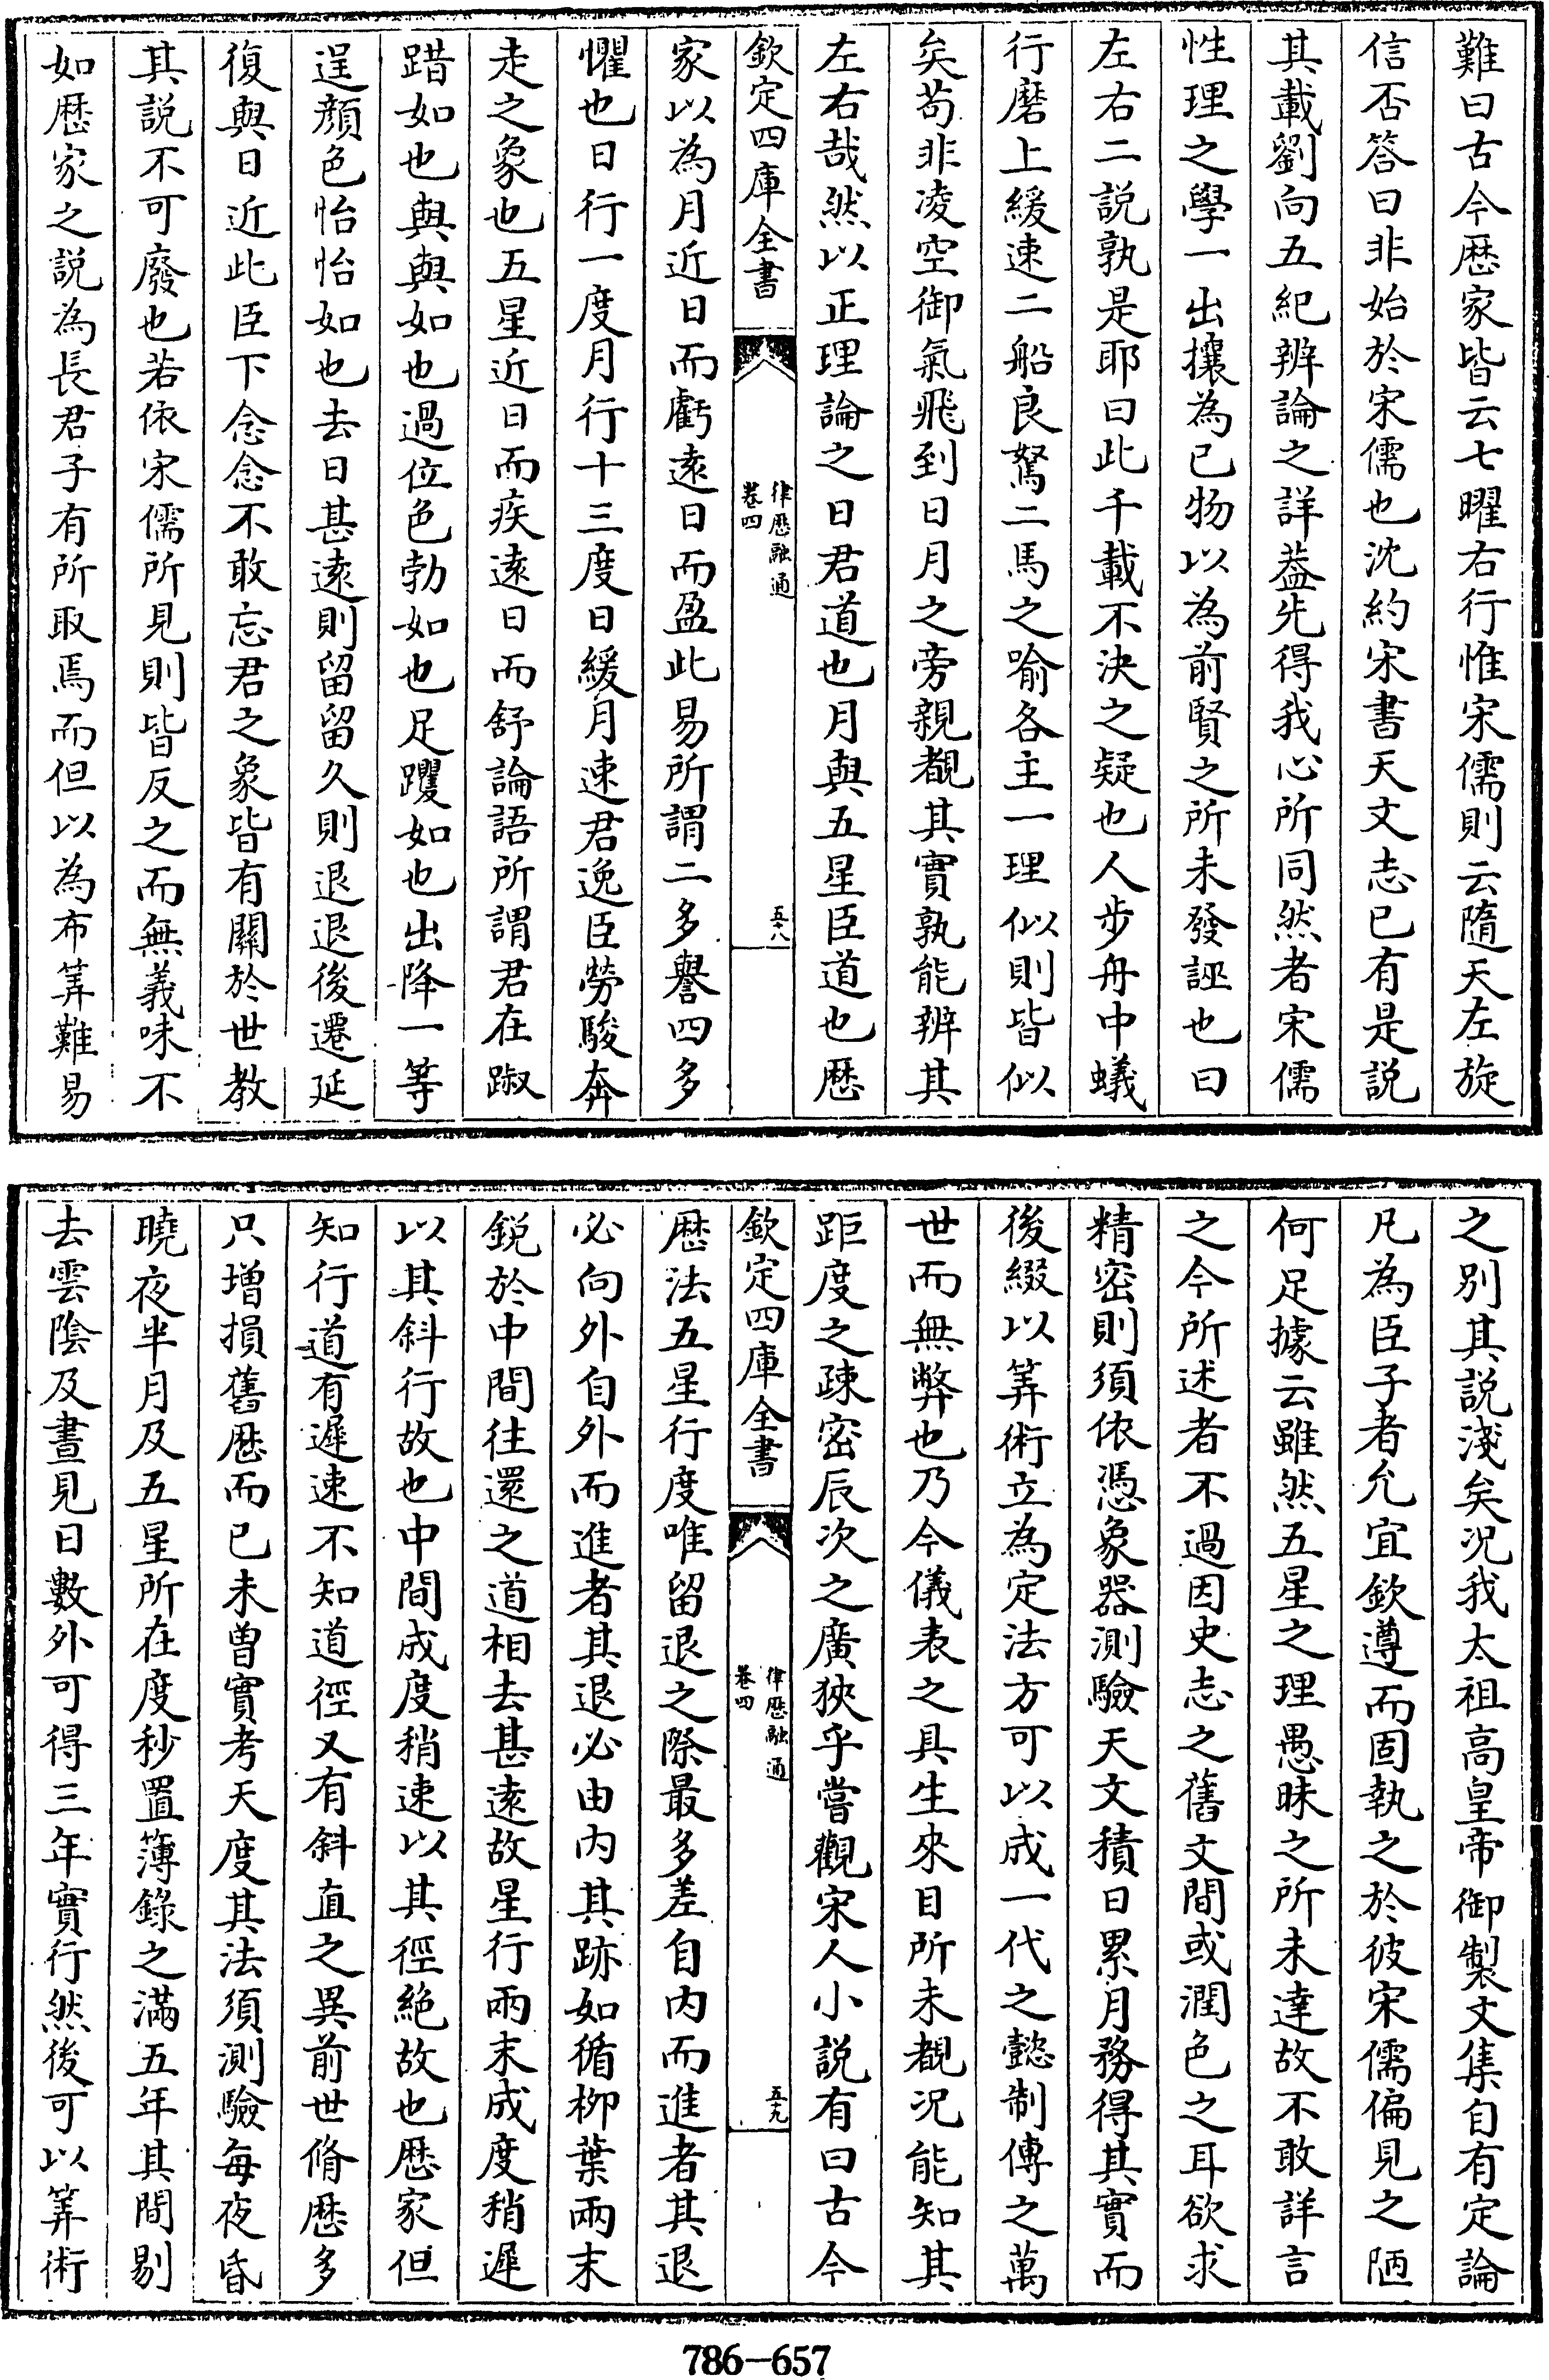 難曰古今厯家皆云七曜右行惟宋儒則云隨天左旋
信否答曰非始於宋儒也沈約宋書天文志已有是説
其載劉向五紀辨論之詳葢先得我心所同然者宋儒
性理之學一出攘為已物以為前賢之所未發誣也曰
左右二説孰是耶曰此千載不決之疑也人步舟中蟻
行磨上緩速二船良駑二馬之喻各主一理似則皆似
矣苟非凌空御氣飛到日月之旁親覩其實孰能辨其
左右哉然以正理論之日君道也月與五星臣道也厯
欽定四庫全書
律厯融通
卷四
五十八
家以為月近日而虧遠日而盈此易所謂二多譽四多
懼也日行一度月行十三度日緩月速君逸臣勞駿奔
走之象也五星近日而疾遠日而舒論語所謂君在踧
踖如也與與如也過位色勃如也足躩如也出降一等
逞顔色怡怡如也去日甚遠則留留久則退退後遷延
復與日近此臣下念念不敢忘君之象皆有關於世教
其説不可廢也若依宋儒所見則皆反之而無義味不
如厯家之説為長君子有所取焉而但以為布筭難易
之别其説淺矣况我太祖高皇帝御製文集自有定論
凡為臣子者允宜欽遵而固執之於彼宋儒偏見之陋
何足據云雖然五星之理愚昧之所未達故不敢詳言
之今所述者不過因史志之舊文間或潤色之耳欲求
精密則須依憑象器測驗天文積日累月務得其實而
後綴以筭術立為定法方可以成一代之懿制傳之萬
世而無弊也乃今儀表之具生來目所未覩况能知其
距度之疎密辰次之廣狹乎嘗觀宋人小説有曰古今
欽定四庫全書
律厯融通
卷四
五十九
厯法五星行度唯留退之際最多差自内而進者其退
必向外自外而進者其退必由内其跡如循柳葉兩末
鋭於中間往還之道相去甚遠故星行兩末成度稍遲
以其斜行故也中間成度稍速以其徑絶故也厯家但
知行道有遲速不知道徑又有斜直之異前世脩厯多
只增損舊厯而已未曽實考天度其法須測驗每夜昏
曉夜半月及五星所在度秒置簿錄之滿五年其間剔
去雲陰及晝見日數外可得三年實行然後可以筭術
786-657